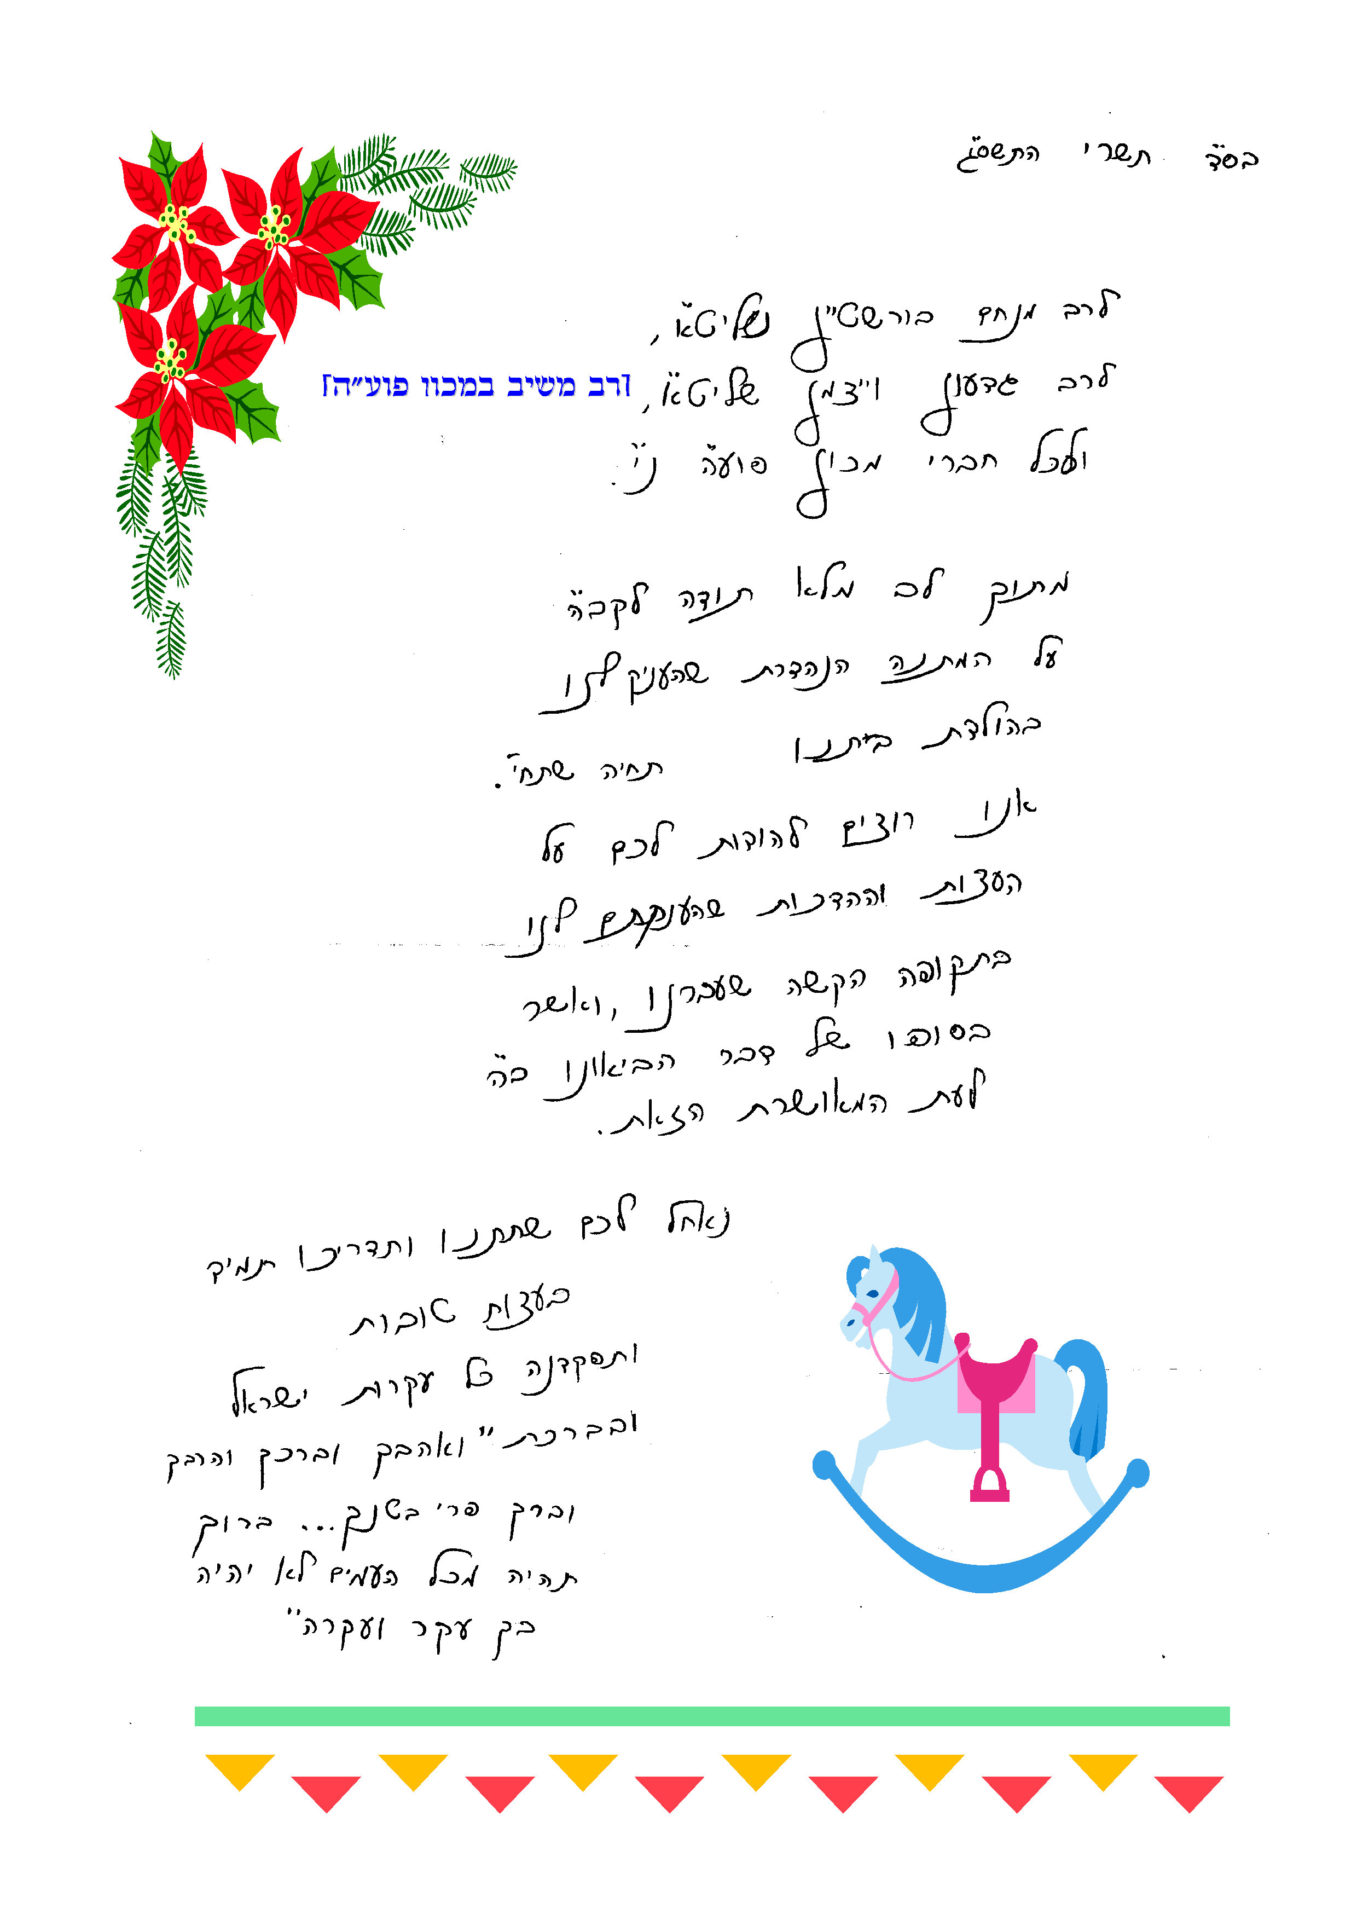 בס"ד תשרי התשס"ג
לרב מנחם בורשטיין שליט"א,
לרב גדעון ויצמן שליט"א, [רב משיב במכון פוע"ה]
ולכל חברי מכון פוע"ה נ"י.
מתוך לב מלא תודה לקב"ה
על המתנה הנהדרת שהעניק לנו
בהולדת ביתנו תחיה שתחי'.
אנו רוצים להודות לכם על
העצות וההדרכות שהענקתם לנו
בתקופה הקשה שעברנו, ואשר
בסופו של דבר הביאונו ב"ה
לעת המאושרת הזאת.
נאחל לכם שתתנו ותדריכו תמיד
בעצות טובות
ותפקדנה כל עקרות ישראל
ובברכת "ואהבך וברכך והרבך
וברך פרי בטנך... ברוך
תהיה מכל העמים לא יהיה
בך עקר ועקרה"